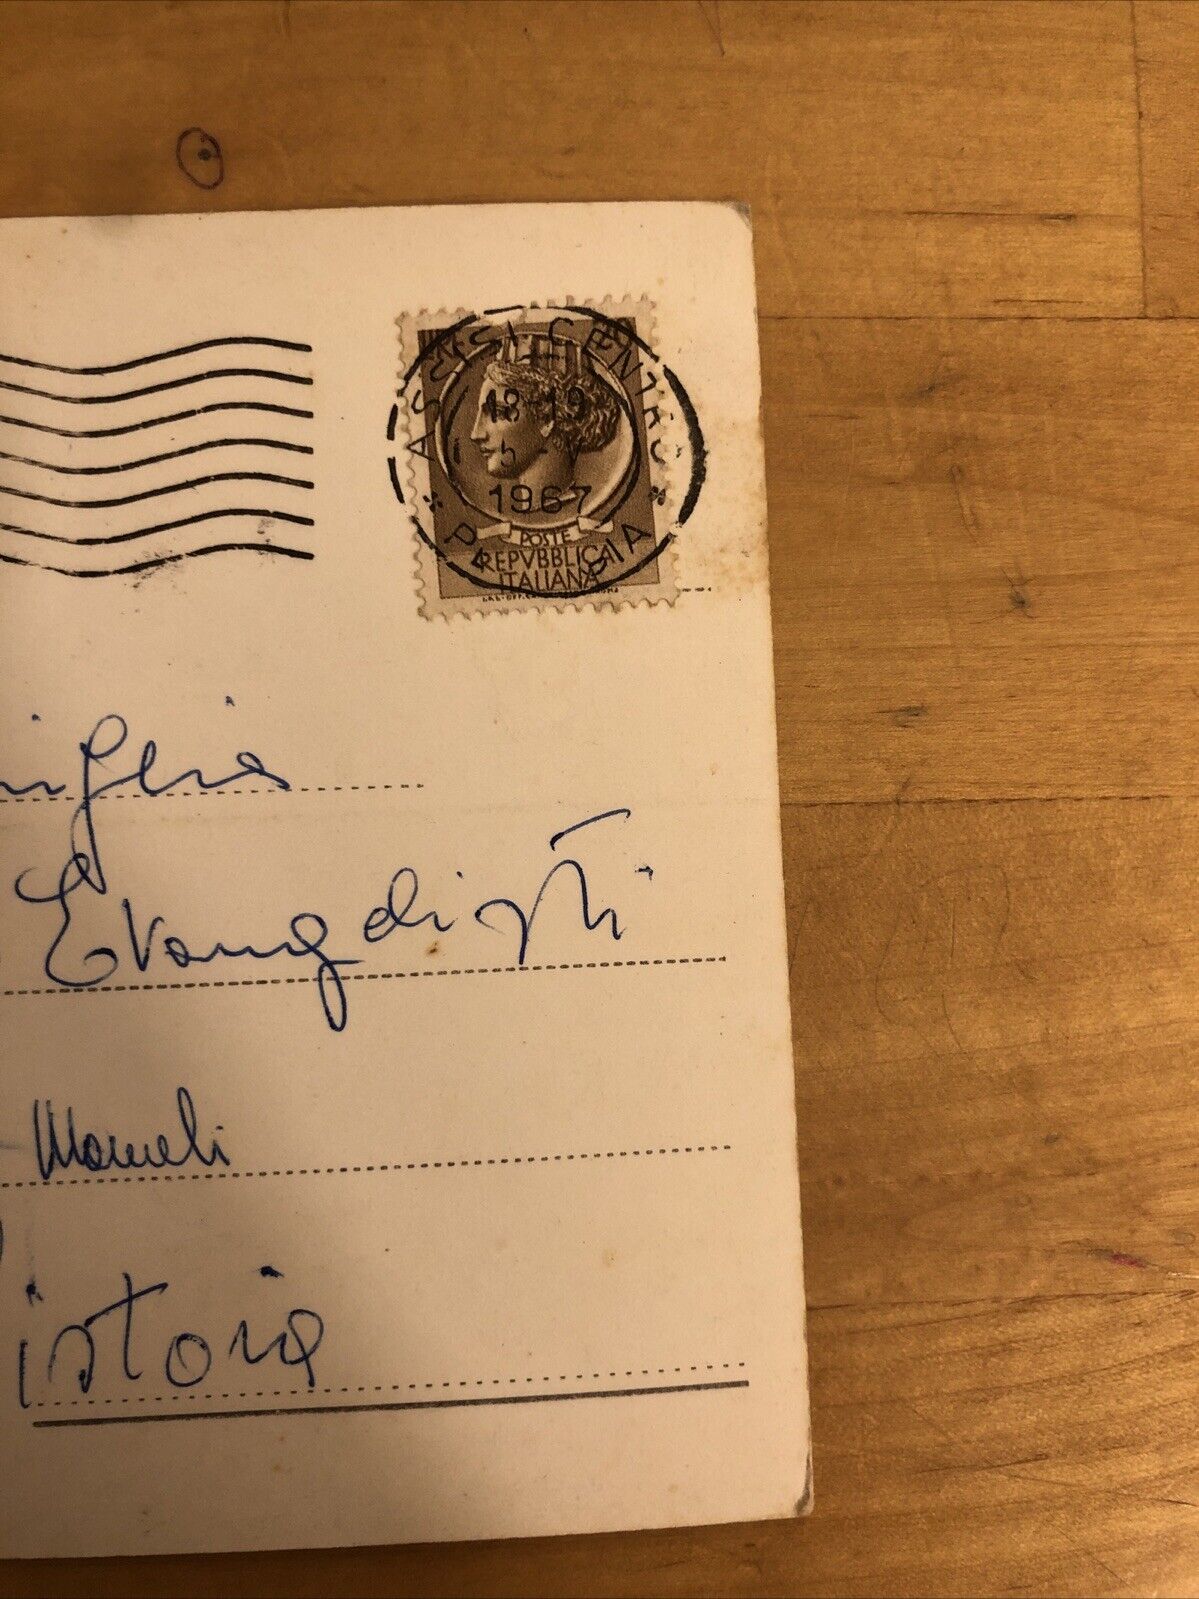 ASSISI CENTRO
18-19
5-V
1967
POSTE
REPVBBLICA
ITALIANA
Evangelisti
Mameli
istoia